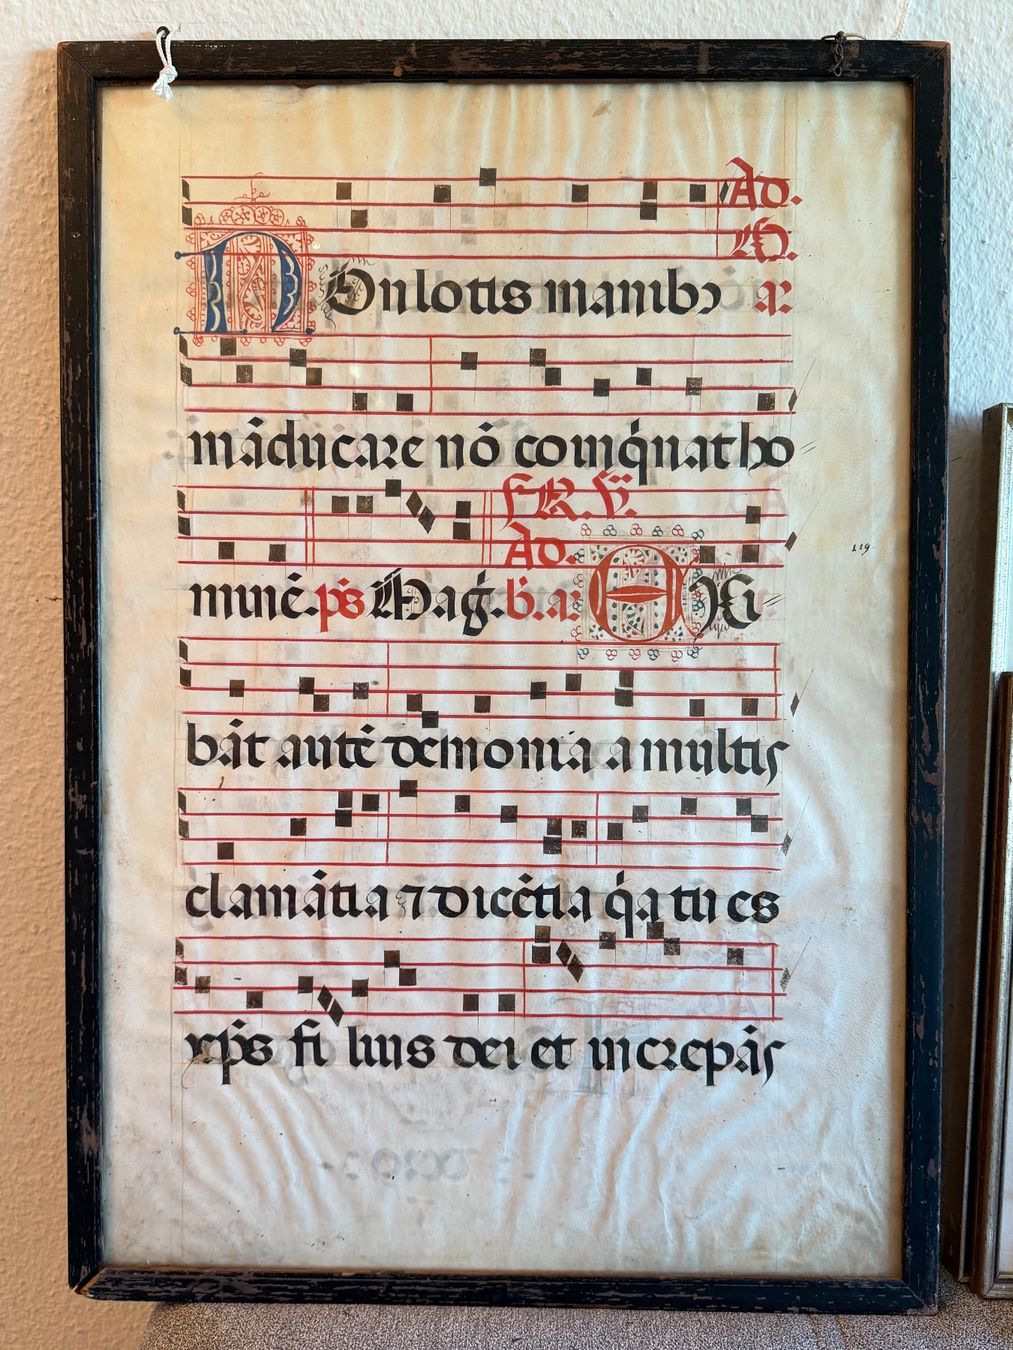 Ad.
M.
NOn lotis manibꝰ añ
mãducare nõ coinq́nat ho
F. R. V̈.
Ad.
minẽ. p̄s Mag̃. b̃. añ EXi
bãt autẽ demonia a multis
clamãtia ⁊ dicẽtia q́a tu es
xp̄s filius dei et increpãs
119.